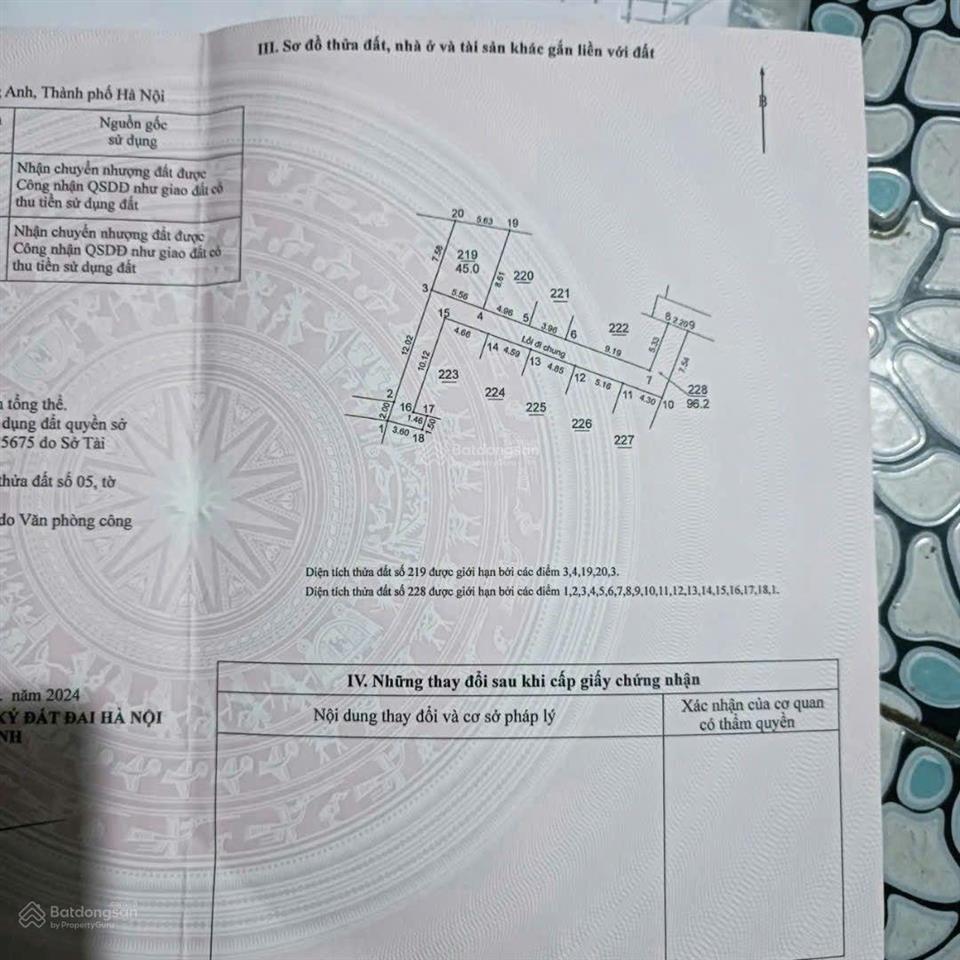 III. Sơ đồ thửa đất, nhà ở và tài sản khác gắn liền với đất
B
Anh, Thành phố Hà Nội
Nguồn gốc
sử dụng
Nhận chuyển nhượng đất được
Công nhận QSDĐ như giao đất có
thu tiền sử dụng đất
Nhận chuyển nhượng đất được
Công nhận QSDĐ như giao đất có
thu tiền sử dụng đất
tổng thể.
dụng đất quyền sở
5675 do Sở Tài
thửa đất số 05, tờ
do Văn phòng công
năm 2024
KÝ ĐẤT ĐAI HÀ NỘI
NH
20 5.63 19
7.58
219
45.0
8.61
220
221
222
3 5.56 4 4.96 5 3.96 6 9.19 7
5.33
8 2.20 9
7.54
228
96.2
Lối đi chung
15 4.66 14 4.59 13 4.85 12 5.16 11 4.30 10
12.02
10.12
223
224
225
226
227
2
2.00
1
16 17
1.46
1.50
3.60 18
Batdongsan
Diện tích thửa đất số 219 được giới hạn bởi các điểm 3,4,19,20,3.
Diện tích thửa đất số 228 được giới hạn bởi các điểm 1,2,3,4,5,6,7,8,9,10,11,12,13,14,15,16,17,18,1.
IV. Những thay đổi sau khi cấp giấy chứng nhận
Nội dung thay đổi và cơ sở pháp lý
Xác nhận của cơ quan
có thẩm quyền
Batdongsan
by PropertyGuru